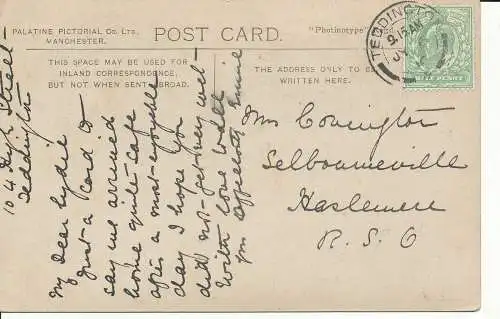 PALATINE PICTORIAL CO. LTD.,
MANCHESTER.
POST CARD.
"Photinotype"
THIS SPACE MAY BE USED FOR
INLAND CORRESPONDENCE,
BUT NOT WHEN SENT ABROAD.
THE ADDRESS ONLY TO BE
WRITTEN HERE.
TEDDINGTON
9.15 AM
HALF PENNY
104 High Street
Teddington
My dear Lydie
Just a card to
say we arrived
home quite safe
after a most enjoyable
day I hope you
did not get very wet
With love to all
Mrs Covington
Selbourneville
Haslemere
R.S.O